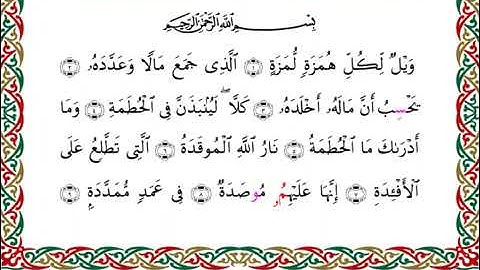 بِسْمِ اللَّهِ الرَّحْمَٰنِ الرَّحِيمِ
وَيْلٌ لِّكُلِّ هُمَزَةٍ لُّمَزَةٍ ١ الَّذِى جَمَعَ مَالًا وَعَدَّدَهُۥ ٢
يَحْسِبُ أَنَّ مَالَهُۥٓ أَخْلَدَهُۥ ٣ كَلَّاۖ لَيُنۢبَذَنَّ فِى الْحُطَمَةِ ٤ وَمَآ
أَدْرَىٰكَ مَا الْحُطَمَةُ ٥ نَارُ اللَّهِ الْمُوقَدَةُ ٦ الَّتِى تَطَّلِعُ عَلَى
الْأَفْـِٔدَةِ ٧ إِنَّهَا عَلَيْهِمُۥ مُوصَدَةٌ ٨ فِى عَمَدٍ مُّمَدَّدَةٍۭ ٩